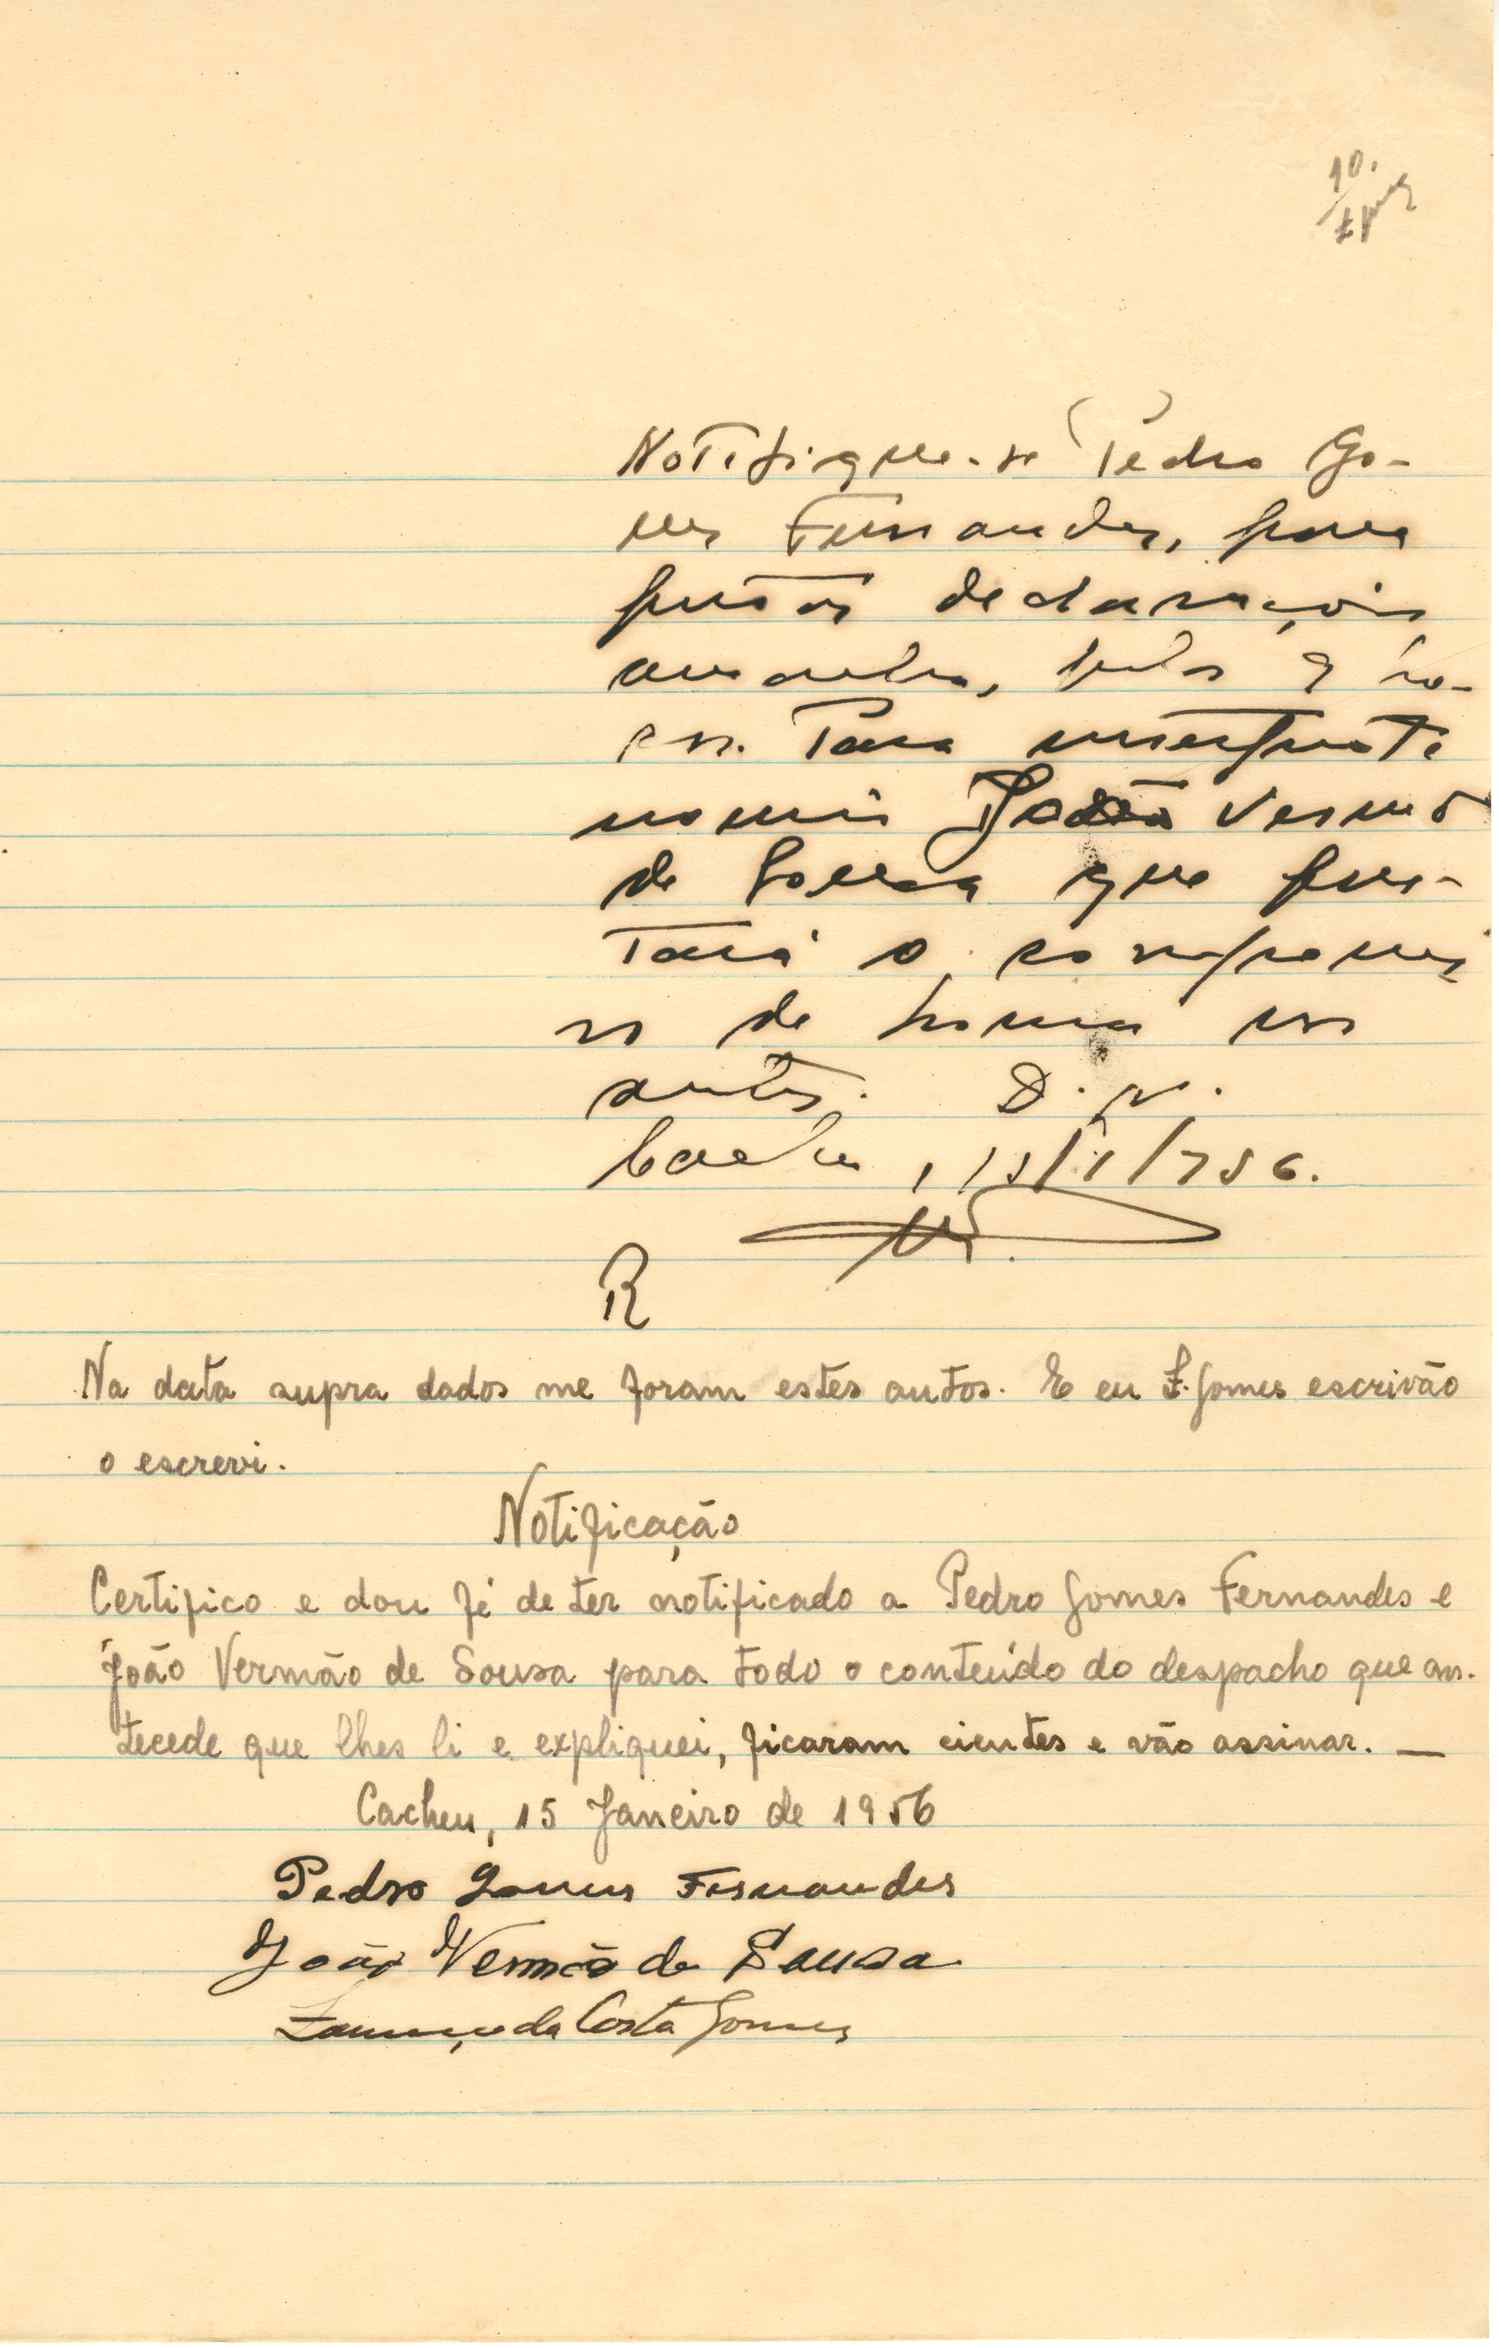 10.
Notifique-se Pedro Go-
mes Fernandes, para
prestar declarações
amanhã, pelas 9 ho-
ras. Para interprete
nomeio João Vermão
de Sousa que pres-
tará o compromis
so de honra nos
autos. D. N.
Cacheu, 15/1/956.
R
Na data supra dados me foram estes autos. E eu L. Gomes escrivão
o escrevi.
Notificação
Certifico e dou fé de ter notificado a Pedro Gomes Fernandes e
João Vermão de Sousa para todo o conteúdo do despacho que an-
tecede que lhes li e expliquei, ficaram cientes e vão assinar. —
Cacheu, 15 Janeiro de 1956
Pedro Gomes Fernandes
João Vermão de Sousa
Lourenço da Costa Gomes